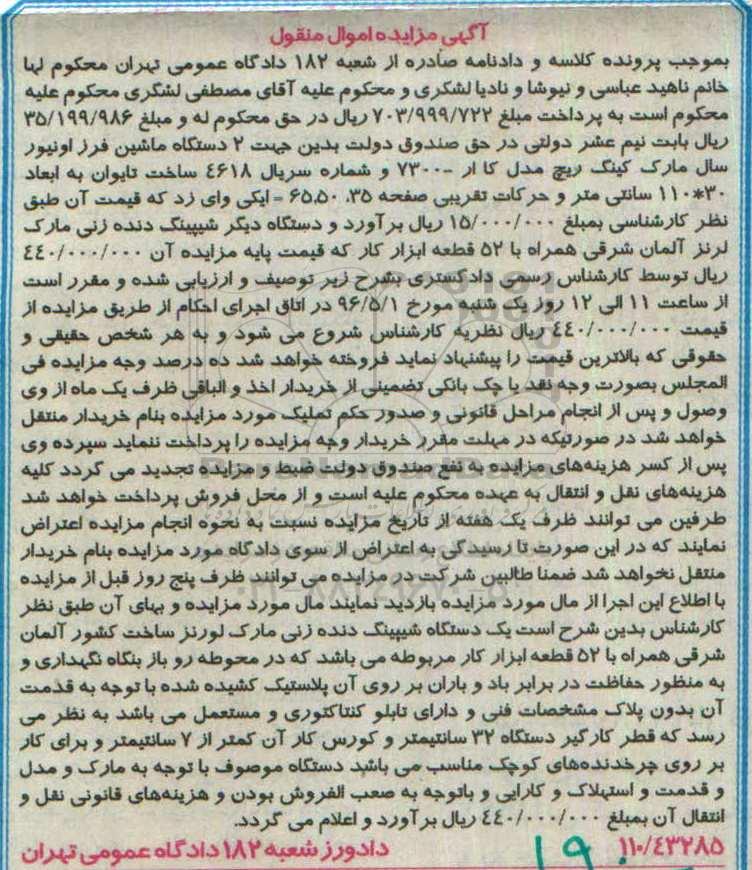 آگهی مزایده اموال منقول
بموجب پرونده کلاسه و دادنامه صادره از شعبه ۱۸۲ دادگاه عمومی تهران محکوم لها
خانم ناهید عباسی و نیوشا و نادیا لشکری و محکوم علیه آقای مصطفی لشگری محکوم علیه
محکوم است به پرداخت مبلغ ۷۰۳/۹۹۹/۷۲۲ ریال در حق محکوم له و مبلغ ۳۵/۱۹۹/۹۸۶
ریال بابت نیم عشر دولتی در حق صندوق دولت بدین جهت ۲ دستگاه ماشین فرز اونیور
سال مارک کینگ ریچ مدل کا ار -۷۳۰۰ و شماره سریال ۴۶۱۸ ساخت تایوان به ابعاد
۳۰*۱۱۰ سانتی متر و حرکات تقریبی صفحه ۳۵، ۶۵،۵۰ - ایکی وای زد که قیمت آن طبق
نظر کارشناسی بمبلغ ۱۵/۰۰۰/۰۰۰ ریال برآورد و دستگاه دیگر شیپینگ دنده زنی مارک
لرنز آلمان شرقی همراه با ۵۲ قطعه ابزار کار که قیمت پایه مزایده آن ۴۴۰/۰۰۰/۰۰۰
ریال توسط کارشناس رسمی دادگستری بشرح زیر توصیف و ارزیابی شده و مقرر است
از ساعت ۱۱ الی ۱۲ روز یک شنبه مورخ ۹۶/۵/۱ در اتاق اجرای احکام از طریق مزایده از
قیمت ۴۴۰/۰۰۰/۰۰۰ ریال نظریه کارشناس شروع می شود و به هر شخص حقیقی و
حقوقی که بالاترین قیمت را پیشنهاد نماید فروخته خواهد شد ده درصد وجه مزایده فی
المجلس بصورت وجه نقد یا چک بانکی تضمینی از خریدار اخذ و الباقی ظرف یک ماه از وی
وصول و پس از انجام مراحل قانونی و صدور حکم تملیک مورد مزایده بنام خریدار منتقل
خواهد شد در صورتیکه در مهلت مقرر خریدار وجه مزایده را پرداخت ننماید سپرده وی
پس از کسر هزینه‌های مزایده به نفع صندوق دولت ضبط و مزایده تجدید می گردد کلیه
هزینه‌های نقل و انتقال به عهده محکوم علیه است و از محل فروش پرداخت خواهد شد
طرفین می توانند ظرف یک هفته از تاریخ مزایده نسبت به نحوه انجام مزایده اعتراض
نمایند که در این صورت تا رسیدگی به اعتراض از سوی دادگاه مورد مزایده بنام خریدار
منتقل نخواهد شد ضمنا طالبین شرکت در مزایده می توانند ظرف پنج روز قبل از مزایده
با اطلاع این اجرا از مال مورد مزایده بازدید نمایند مال مورد مزایده و بهای آن طبق نظر
کارشناس بدین شرح است یک دستگاه شیپینگ دنده زنی مارک لورنز ساخت کشور آلمان
شرقی همراه با ۵۲ قطعه ابزار کار مربوطه می باشد که در محوطه رو باز بنگاه نگهداری و
به منظور حفاظت در برابر باد و باران بر روی آن پلاستیک کشیده شده با توجه به قدمت
آن بدون پلاک مشخصات فنی و دارای تابلو کنتاکتوری و مستعمل می باشد به نظر می
رسد که قطر کارگیر دستگاه ۳۲ سانتیمتر و کورس کار آن کمتر از ۷ سانتیمتر و برای کار
بر روی چرخدنده‌های کوچک مناسب می باشد دستگاه موصوف با توجه به مارک و مدل
و قدمت و استهلاک و کارایی و باتوجه به صعب الفروش بودن و هزینه‌های قانونی نقل و
انتقال آن بمبلغ ۴۴۰/۰۰۰/۰۰۰ ریال برآورد و اعلام می گردد.
۱۱۰/۴۳۲۸۵ دادورز شعبه ۱۸۲ دادگاه عمومی تهران